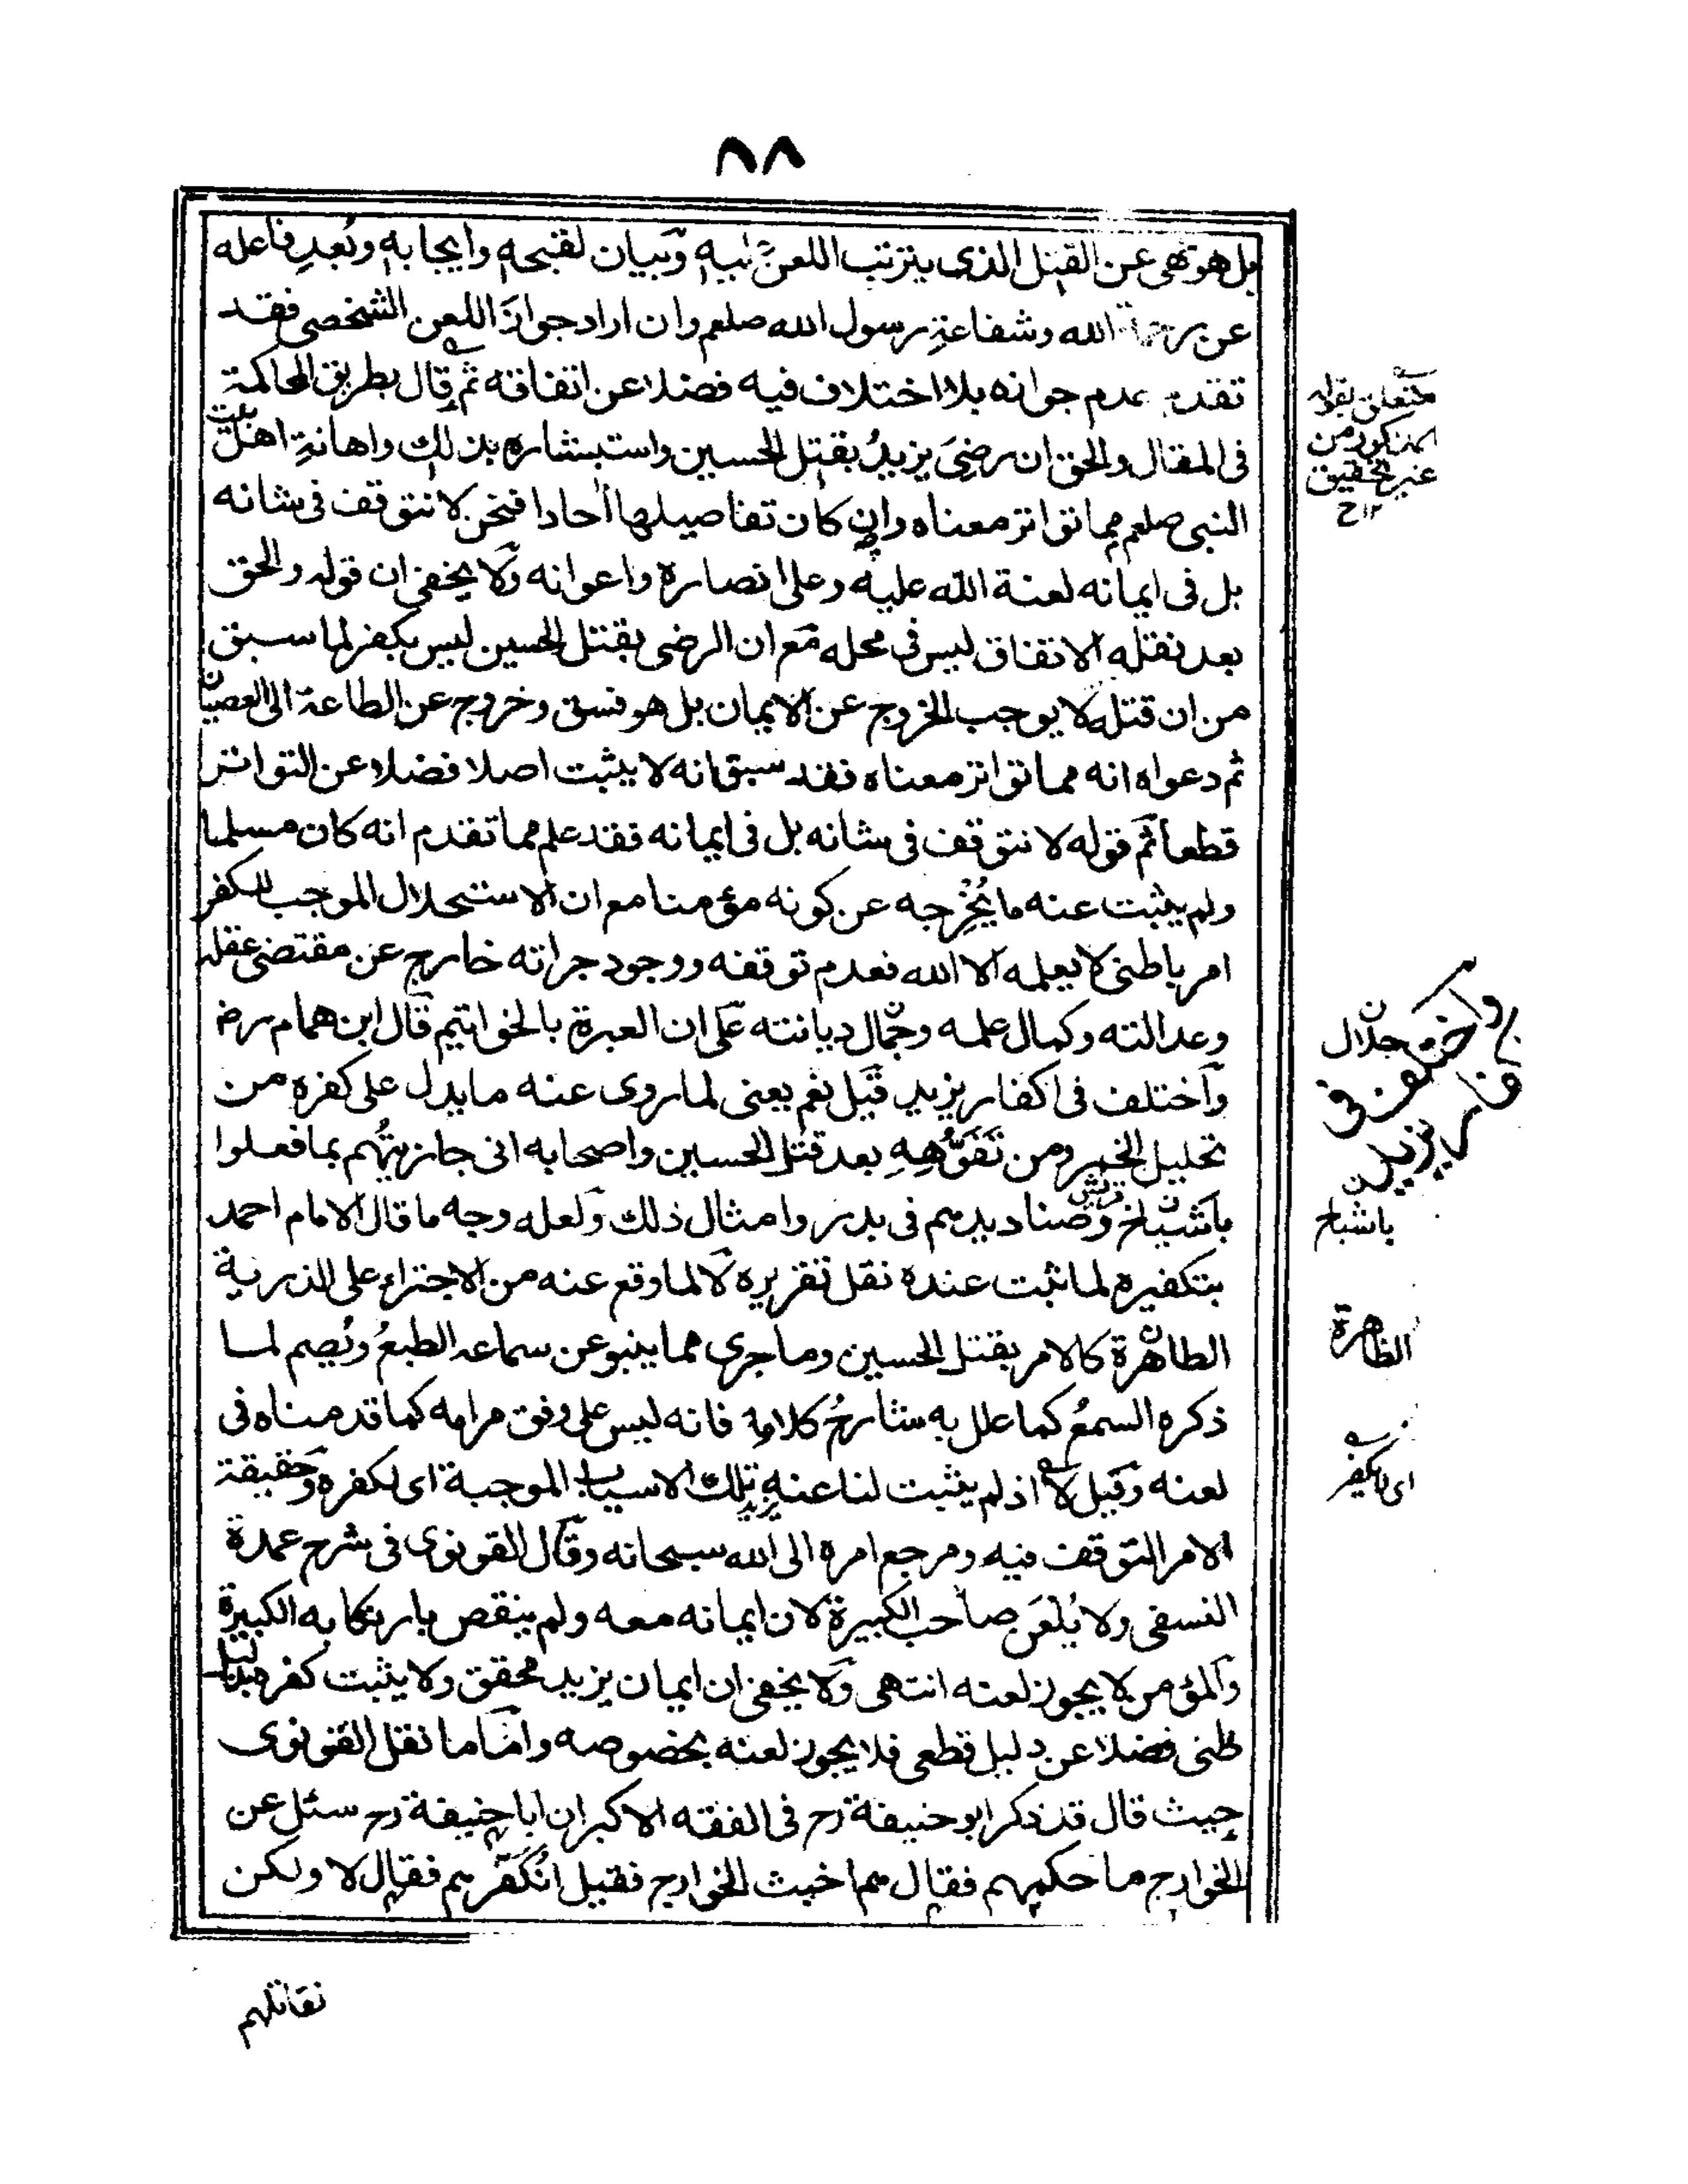 ٨٨
بل هو نهى عن القتل الذى يترتب اللعن عليه وبيان لقبحه وايجابه وبُعدِ فاعله
عن رحمة الله وشفاعةِ رسول الله صلعم وان اراد جوازَ اللعن الشخصى فقد
تقدم عدم جوازه بلا اختلاف فيه فضلا عن اتفاقه ثم قال بطريق المحاكمة
فى المقال والحق ان رضىَ يزيدُ بقتل الحسين واستبشاره بذلك واهانةِ اهل بيت
النبى صلعم مما تواتر معناه وان كان تفاصيلها أحادا فنحن لا نتوقف فى شانه
بل فى ايمانه لعنة الله عليه وعلى انصاره واعوانه ولا يخفى ان قوله والحق
بعد نقله الاتفاق ليس فى محله مع ان الرضى بقتل الحسين ليس بكفر لما سبق
من ان قتله لا يوجب الخروج عن الايمان بل هو فسق وخروج عن الطاعة الى العصيان
ثم دعواه انه مما تواتر معناه فقد سبق انه لا يثبت اصلا فضلا عن التواتر
قطعا ثم قوله لا نتوقف فى شانه بل فى ايمانه فقد علم مما تقدم انه كان مسلما
ولم يثبت عنه ما يُخْرِجه عن كونه مؤمنا مع ان الاستحلال الموجب للكفر
امر باطنى لا يعلمه الا الله فعدم توقفه ووجود جراته خارج عن مقتضى عقله
وعدالته وكمال علمه وجمال ديانته على ان العبرة بالخواتيم قال ابن همام رض
واختلف فى اكفار يزيد قيل نعم يعنى لما روى عنه ما يدل على كفره من
تحليل الخمر ومن تَفَوُّهِهِ بعد قتل الحسين واصحابه انى جازيتُهم بما فعلوا
باشياخ قريش وصناديدهم فى بدر وامثال ذلك ولعله وجه ما قال الامام احمد
بتكفيره لما ثبت عنده نقل تقريره لا لما وقع عنه من الاجتراء على الذرية
الطاهرة كالامر بقتل الحسين وما جرى مما ينبو عن سماعه الطبعُ ويُصم لما
ذكره السمعُ كما علل به شارحُ كلامه فانه ليس على وفق مرامه كما قدمناه فى
لعنه وقيل لا اذ لم يثبت لنا عنه تلك الاسباب الموجبة اى لكفره وحقيقة
الامر التوقف فيه ومرجع امره الى الله سبحانه وقال القونوى فى شرح عمدة
النسفى ولا يُلعَن صاحب الكبيرة لان ايمانه معه ولم ينقص بارتكابه الكبيرة
والمؤمن لا يجوز لعنه انتهى ولا يخفى ان ايمان يزيد محقق ولا يثبت كفره بدليل
ظنى فضلا عن دليل قطعى فلا يجوز لعنه بخصوصه واما ما نقل القونوى
حيث قال قد ذكر ابو حنيفة رح فى الفقه الاكبر ان ابا حنيفة رح سئل عن
الخوارج ما حكمهم فقال هم اخبث الخوارج فقيل انُكَفّرهم فقال لا ولكن
نقاتلهم
متعلق بقوله
المذكور من
غير تحقيق
١٢ ح
واختلف فى
اكفار يزيد
جلال
باشباخ
الظاهرة
اى لا يكفر